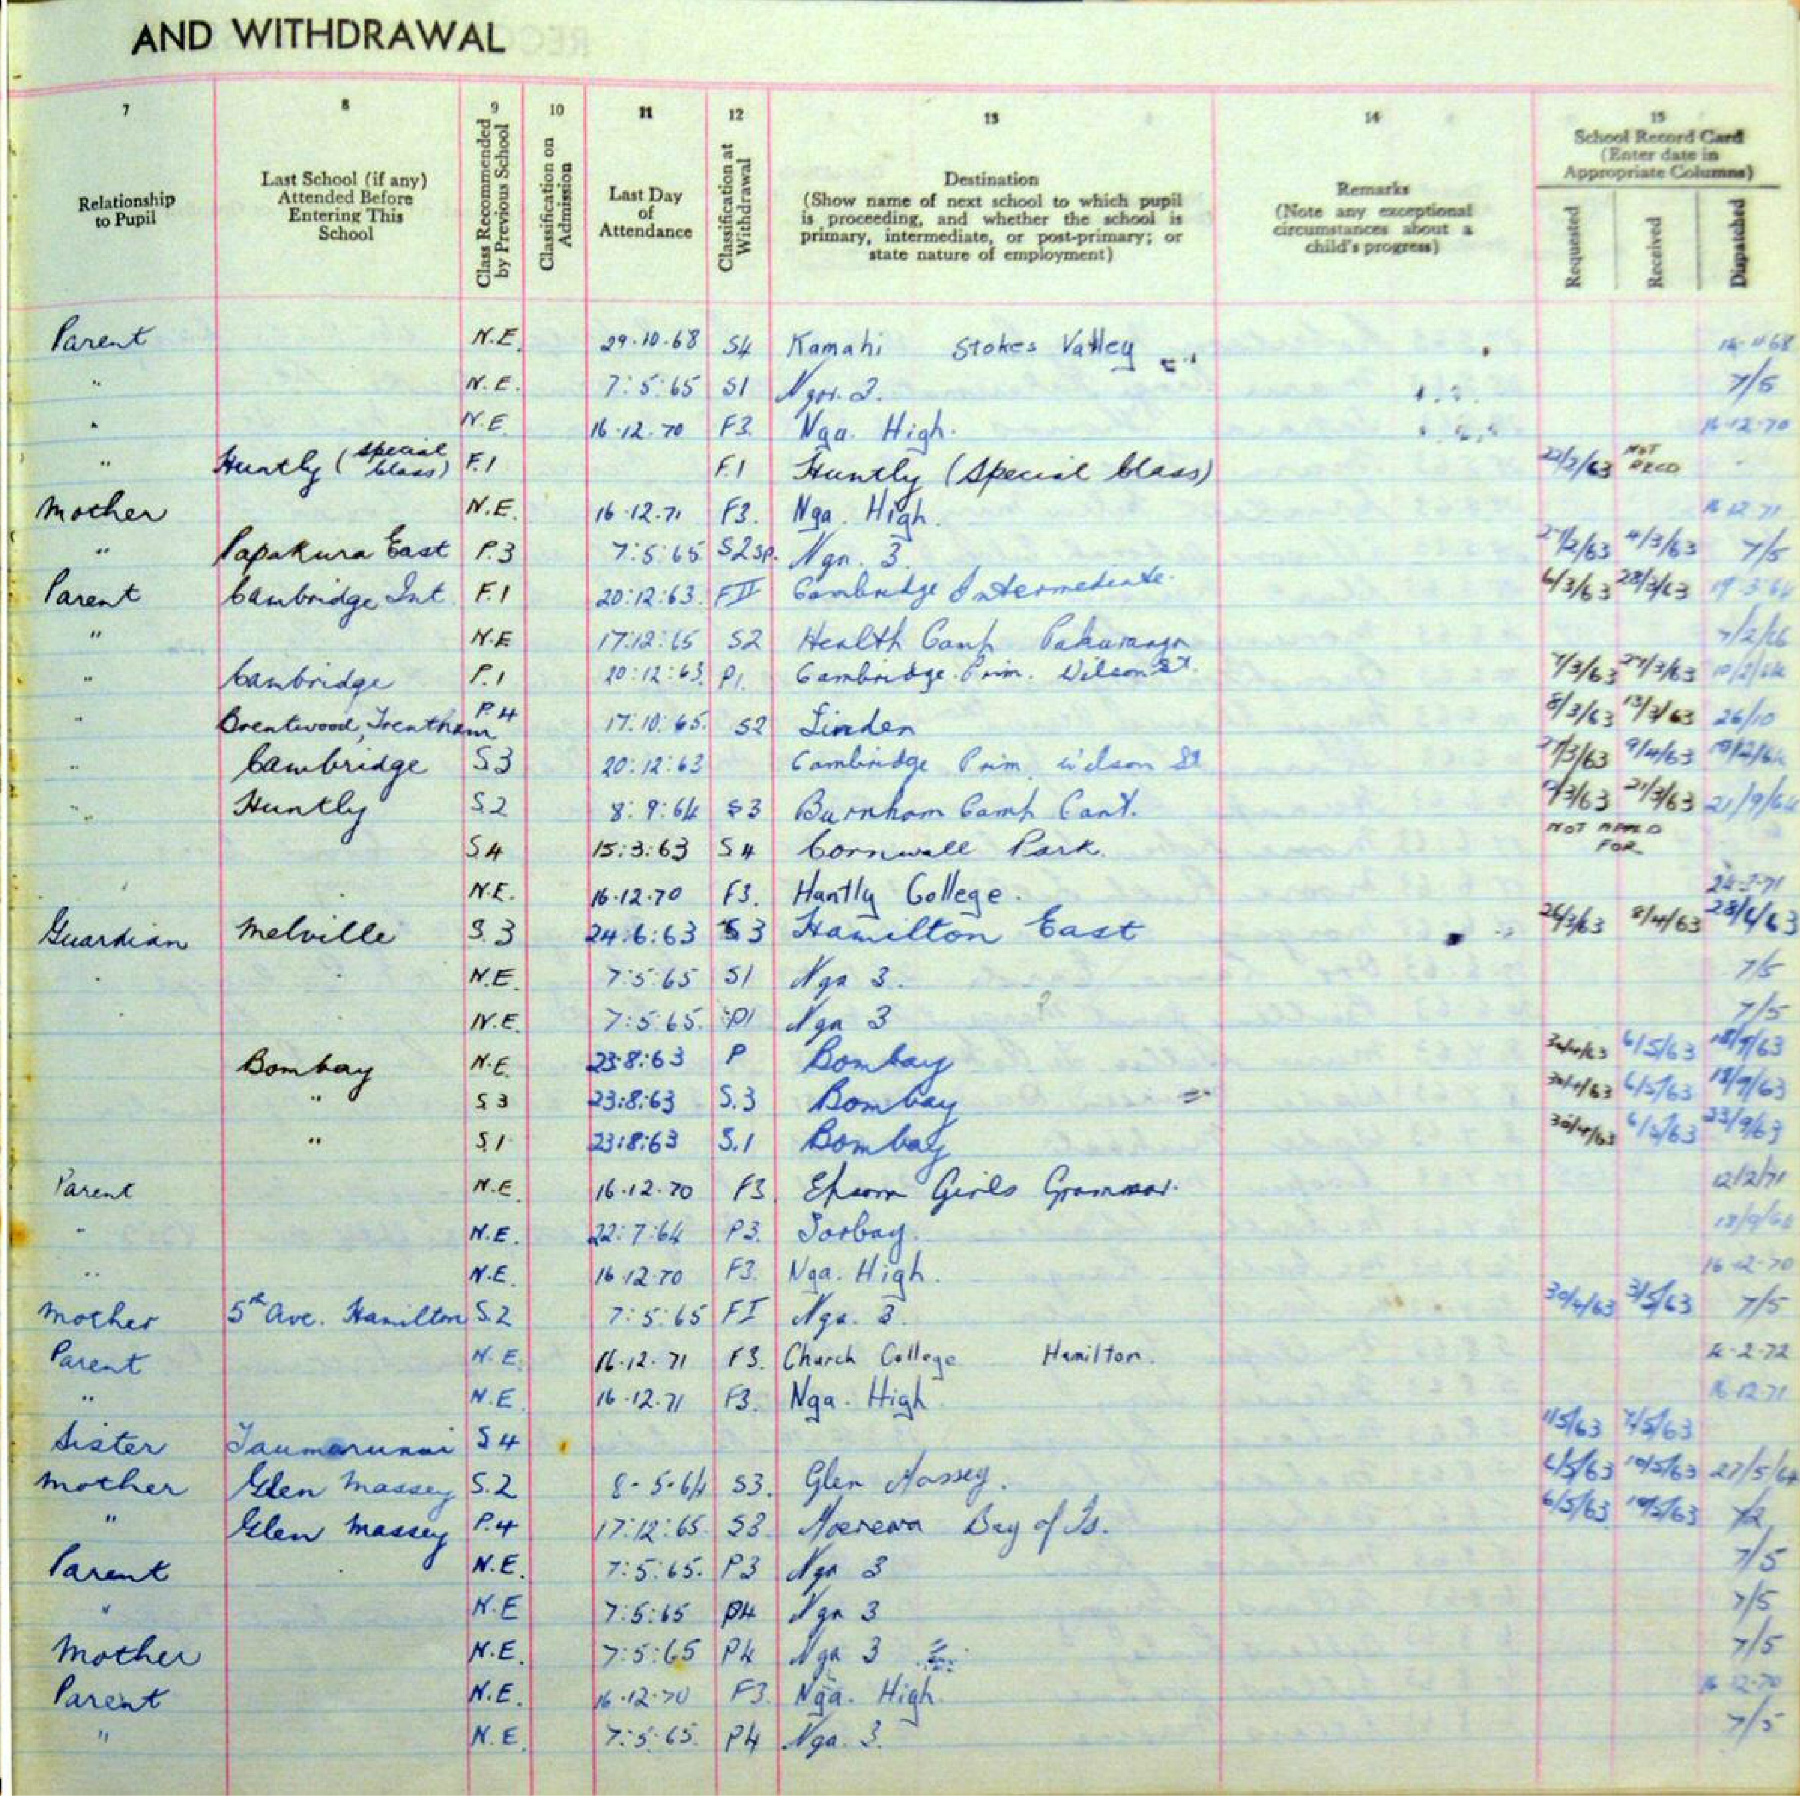 AND WITHDRAWAL
7 8 9 10 11 12 13 14 15
Relationship to Pupil
Last School (if any) Attended Before Entering This School
Class Recommended by Previous School
Classification on Admission
Last Day of Attendance
Classification at Withdrawal
Destination
(Show name of next school to which pupil is proceeding, and whether the school is primary, intermediate, or post-primary; or state nature of employment)
Remarks
(Note any exceptional circumstances about a child's progress)
School Record Card
(Enter date in Appropriate Columns)
Requested Received Dispatched
Parent N.E. 29.10.68 S4 Kamahi Stokes Valley
" N.E. 7:5:65 S1 7/5
" N.E. 16.12.70 F3. Nga. High. 16.12.70
" Huntly (special class) F.1 F.1 Huntly (special class) 22/2/63 NOT RECD
Mother N.E. 16.12.71 F3. Nga. High. 16.12.71
" Papakura East P.3 7:5:65 S2sp. Nga. 3. 27/2/63 4/3/63 7/5
Parent Cambridge Int. F.1 20:12:63. FII Cambridge Intermediate. 6/3/63 28/3/63 19.3.64
" N.E 17:12:65 S2 Health Camp Pakuranga 7/2/66
" Cambridge P.1 20:12:63. P1. Cambridge Prim. Wilson St. 7/3/63 27/3/63 10/2/64
" Brentwood, Trentham P.4 17:10:65. S2 Linden 8/3/63 13/3/63 26/10
" Cambridge S3 20:12:63 Cambridge Prim. Wilson St 27/3/63 9/4/63 10/2/64
" Huntly S.2 8:9:64 S3 Burnham Camp Cant. 21/3/63 21/9/64
S.4 15:3:63 S4 Cornwall Park. NOT APPLD FOR
N.E. 16.12.70 F3. Huntly College.
Guardian Melville S.3 24:6:63 S3 Hamilton East 26/3/63 8/4/63 28/6/63
N.E. 7:5:65 S1 Nga 3. 7/5
N.E. 7:5:65. P1 Nga 3 7/5
Bombay N.E. 23:8:63 P Bombay 30/4/63 6/5/63 18/9/63
" S3 23:8:63 S.3 Bombay 30/4/63 6/5/63 18/9/63
" S.1 23:8:63 S.1 Bombay 30/4/63 6/5/63 23/9/63
Parent N.E. 16.12.70 F3 Epsom Girls Grammar. 12/2/71
" N.E. 22:7:64 P3. Torbay.
" N.E. 16.12.70 F3. Nga. High.
Mother 5th Ave. Hamilton S.2 7:5:65 FI Nga. 3. 30/4/63 3/5/63 7/5
Parent N.E. 16.12.71 F3. Church College Hamilton. 2.72
" N.E. 16.12.71 F3. Nga. High 16.12.71
Sister Taumarunui S4 1/5/63 7/5/63
Mother Glen Massey S.2 8-5-64 S3. Glen Massey. 6/5/63 10/5/63 27/5/64
" Glen Massey P.4 17:12:65 S3. Moerewa Bay of Is. 6/5/63 10/5/63
Parent N.E. 7:5:65. P3 Nga 3 7/5
" N.E 7:5:65 P4 Nga 3 7/5
Mother N.E. 7:5:65 P4 Nga 3 7/5
Parent N.E. 16.12.70 F3. Nga. High. 16.12.70
" N.E. 7:5:65. P4 Nga. 3. 7/5